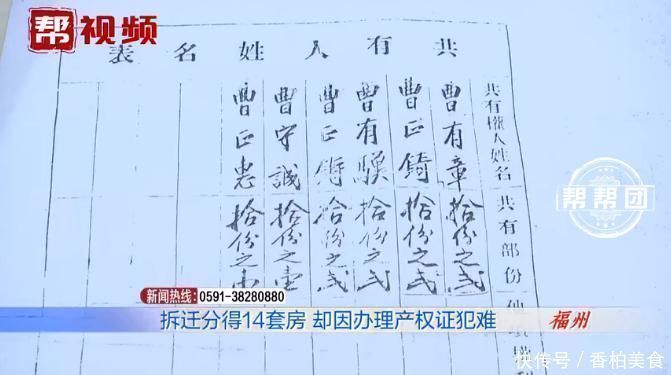 帮视频
共有人姓名表
共有權人姓名
共有部份
曹有章 拾份之弍
曹正錡 拾份之弍
曹有騤 拾份之弍
曹正 拾份之弍
曹守誠 拾份之壹
曹正惠 拾份之壹
帮帮团
新闻热线: 0591-38280880
拆迁分得14套房 却因办理产权证犯难
福州
快传号 / 香柏美食